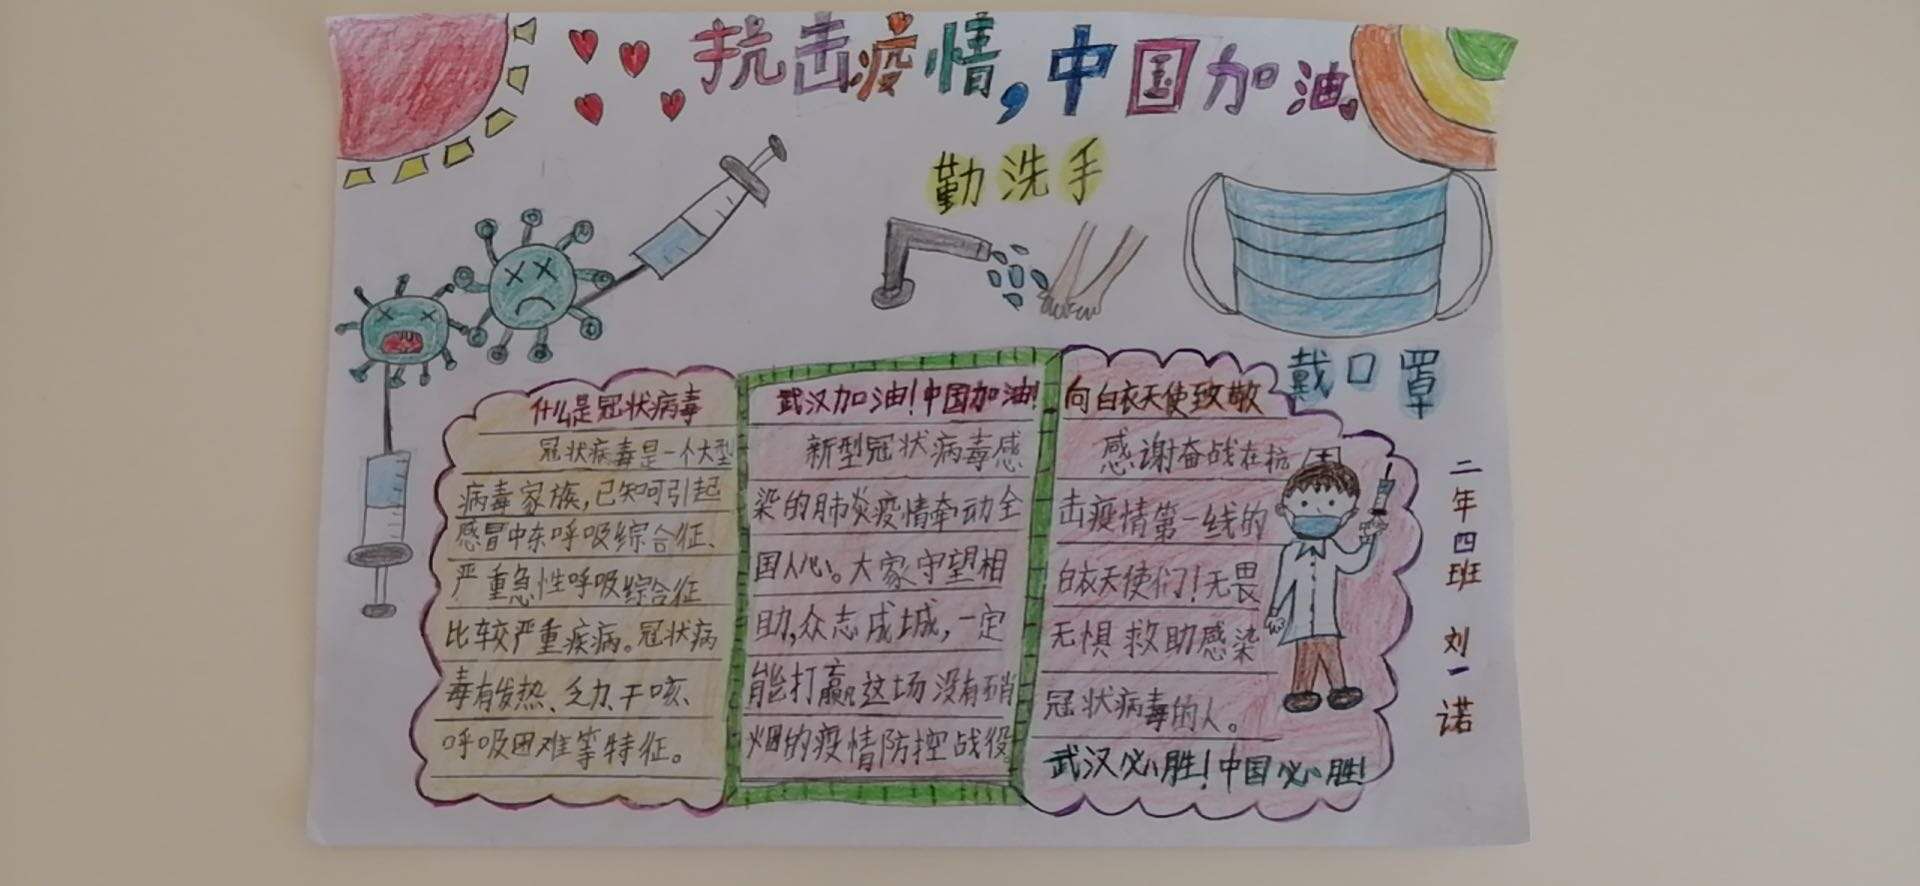 抗击疫情，中国加油
勤洗手
戴口罩
什么是冠状病毒
冠状病毒是一个大型
病毒家族，已知可引起
感冒中东呼吸综合征、
严重急性呼吸综合征
比较严重疾病。冠状病
毒有发热、乏力、干咳、
呼吸困难等特征。
武汉加油！中国加油！
新型冠状病毒感
染的肺炎疫情牵动全
国人心。大家守望相
助，众志成城，一定
能打赢这场没有硝
烟的疫情防控战役。
向白衣天使致敬
感谢奋战在抗
击疫情第一线的
白衣天使们！无畏
无惧救助感染
冠状病毒的人。
武汉必胜！中国必胜！
二年四班 刘一诺